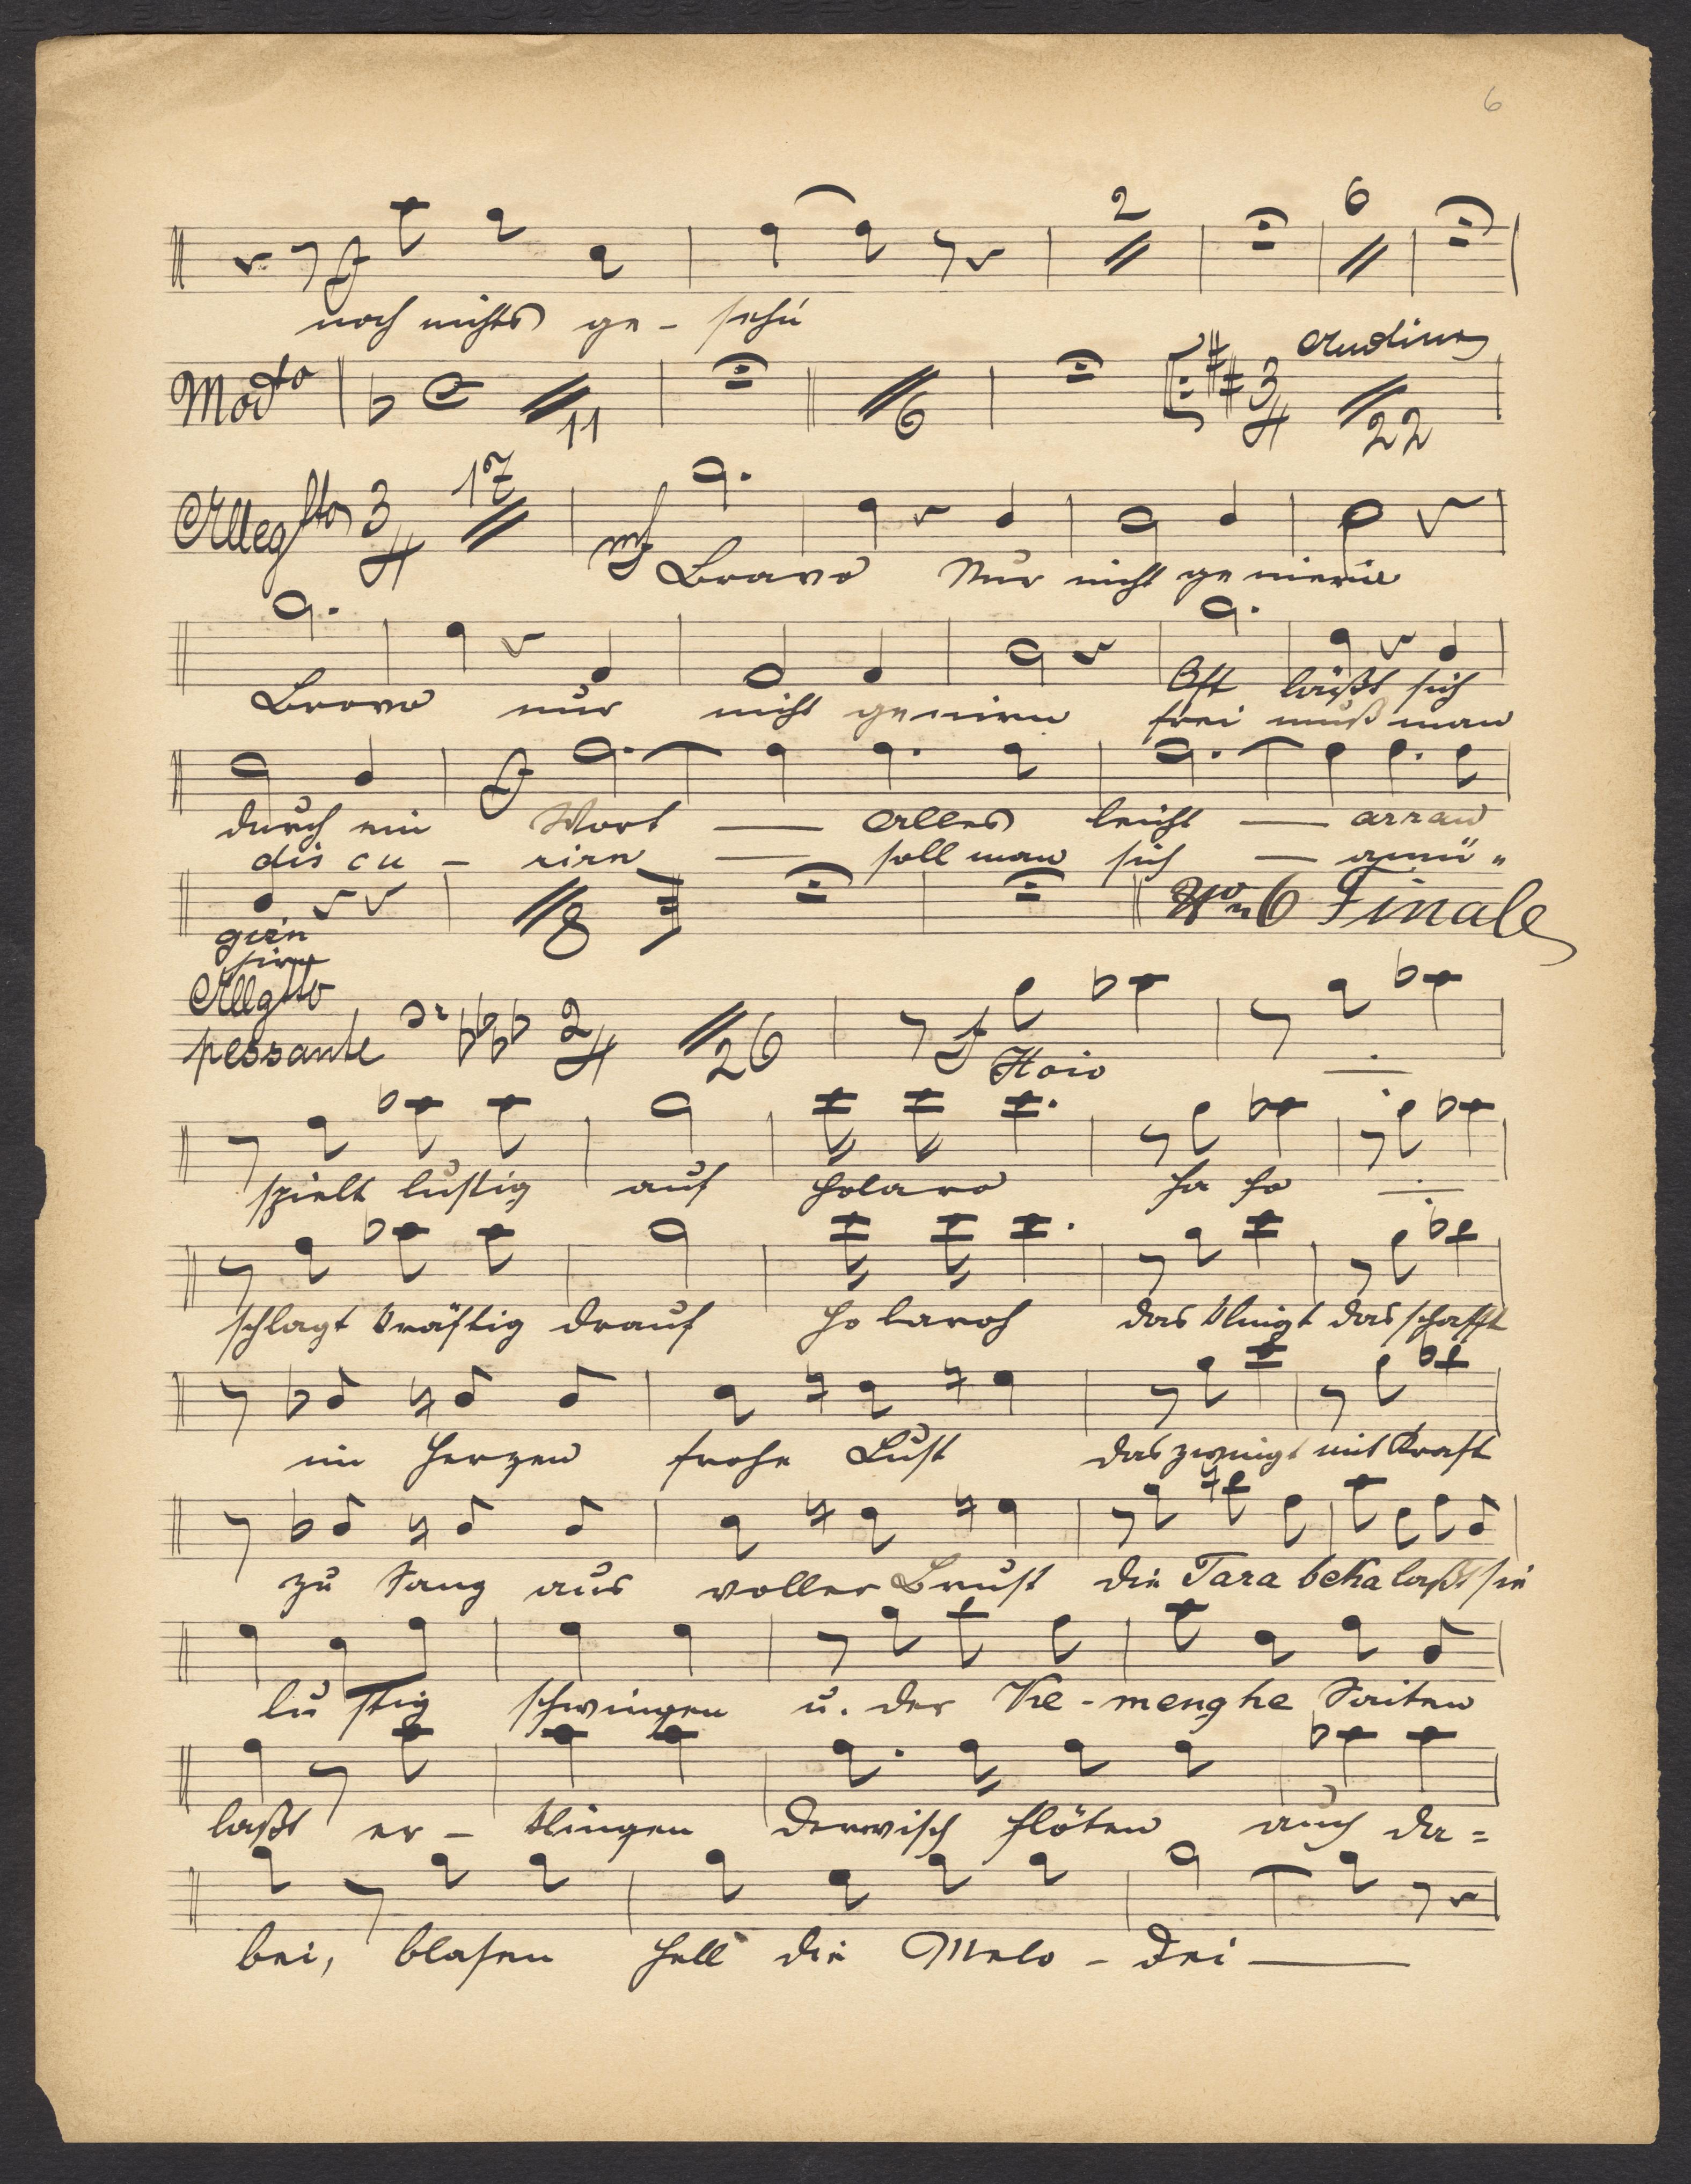 6
2 6
noch nichts ge - sehn
Modto 11 6 3/4 22
Allegtto 3/4 17
mf Bravo Nur nicht genieren
Bravo nur nicht geniren Oft läßt sich
frei muß man
f
durch ein Wort — Alles leicht — arran
discu - riren — soll man sich — amü"
8 No 6 Finale
giren
siren
Allgtto
pessante 2/4 26 f Hoio
spielt lustig auf holaro ha ho
schlagt kräftig drauf ho laroh das klingt das schafft
im Herzen frohe Lust das zwingt mit Kraft
zu Sang aus voller Brust die Tarabeka laßt sie
lustig schwingen u. der Ke - menghe Saiten
laßt er - klingen Derwisch flöten auch da =
bei, blasen hell die Melo - dei —